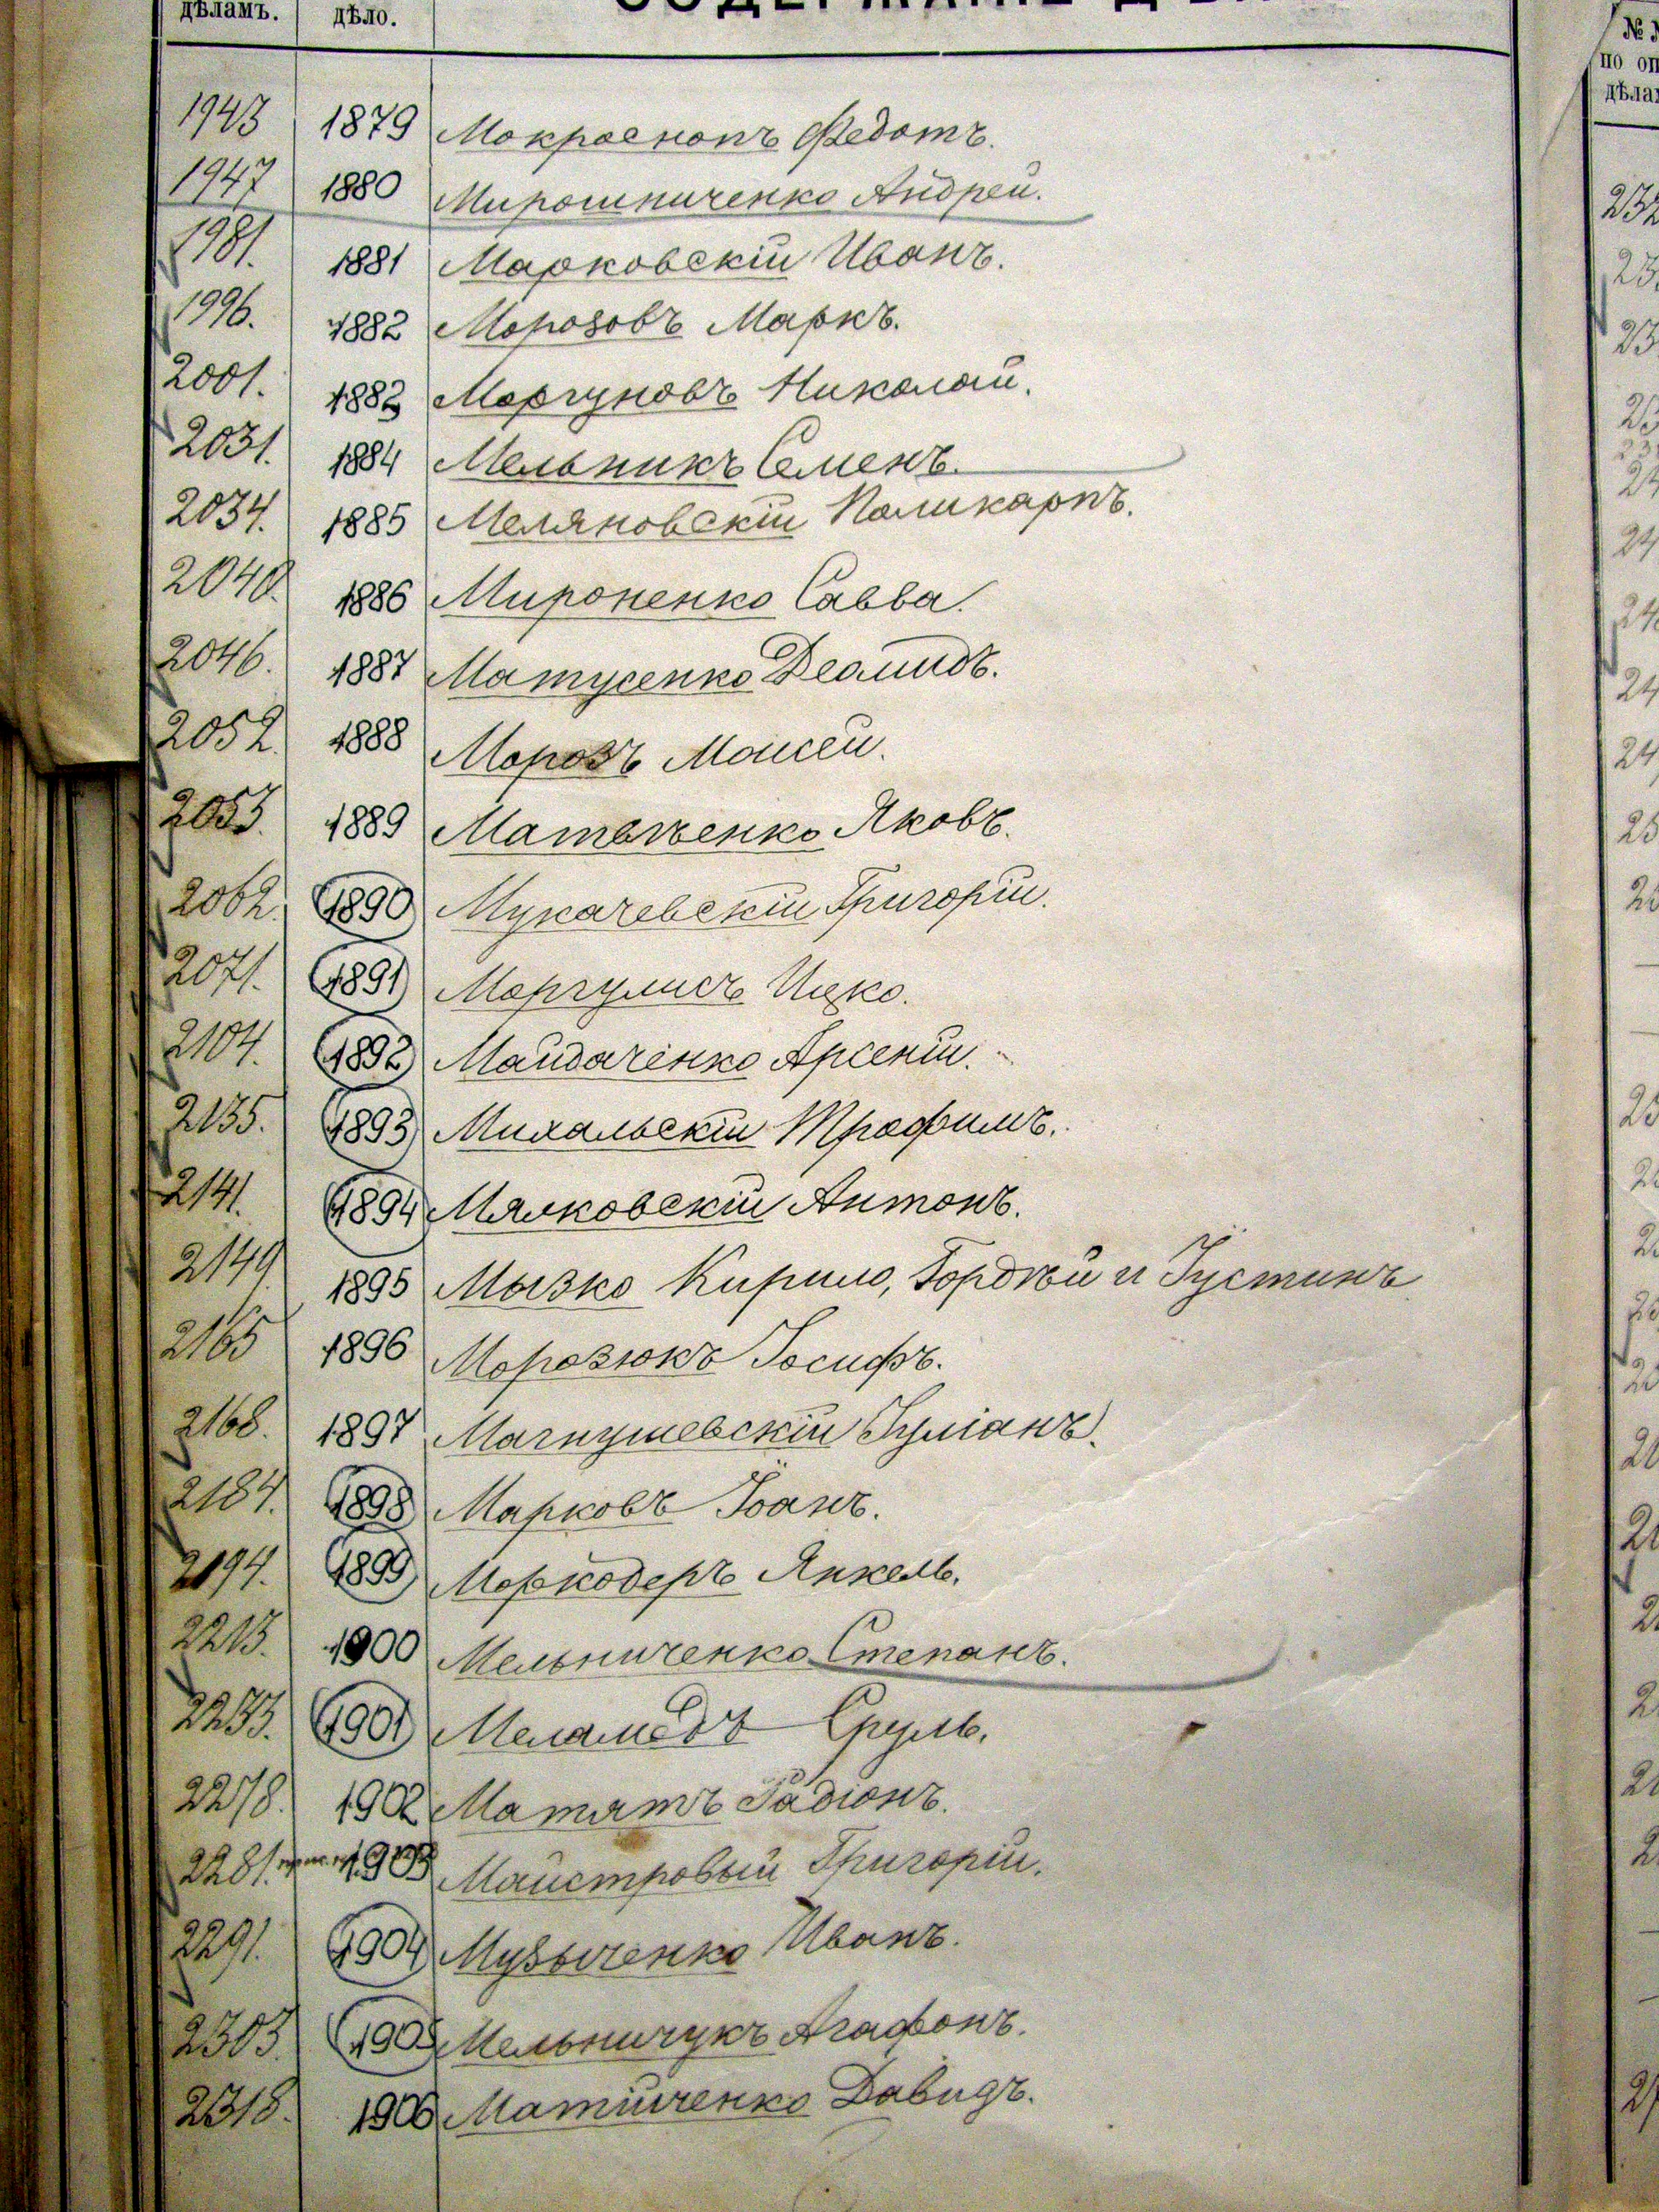 дѣламъ. дѣло. СОДЕРЖАНІЕ
1943 1879 Мокроснопъ Федотъ.
1947 1880 Мирошниченко Андрей.
1981. 1881 Марковскій Иванъ.
1996. 1882 Морозовъ Маркъ.
2001. 1883 Моргуновъ Николай.
2031. 1884 Мельникъ Семенъ.
2034. 1885 Меляновскій Поликарпъ.
2040. 1886 Мироненко Савва.
2046. 1887 Матусенко Деомидъ.
2052. 1888 Морозъ Моисей.
2053. 1889 Яковъ.
2062. 1890 Мукачевскій Григорій.
2071. 1891 Моргулисъ Ицко.
2104. 1892 Майдаченко Арсеній.
2135. 1893 Михальскій Трофимъ.
2141. 1894 Мялковскій Антонъ.
2149 1895 Мызко Кирило, Гордѣй и Іустинъ
2165 1896 Морозюкъ Іосифъ.
2168. 1897 Магнушевскій Іуліанъ.
2184. 1898 Марковъ Іоанъ.
2194. 1899 Моркодеръ Янкель.
2213. 1900 Мельниченко Степанъ.
2233. 1901 Меламедъ Сруль.
2278. 1902 Матятъ Радіонъ.
2281. 1903 Майстровый Григорій.
2291. 1904 Музыченко Иванъ.
2303. 1905 Мельничукъ Агафонъ.
2318. 1906 Матійченко Давидъ.